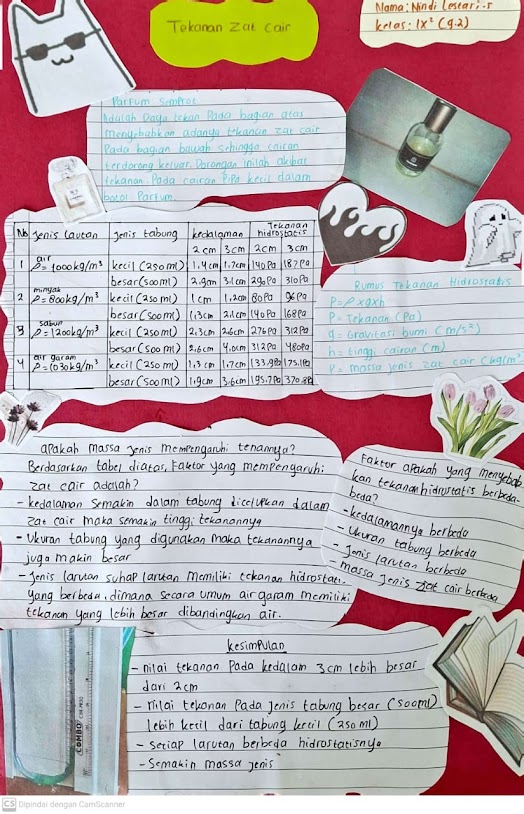 Tekanan Zat cair
Nama: Nindi Lestari.s
kelas: IX² (9.2)
Parfum Semprot
Adalah Daya tekan Pada bagian atas
menyebabkan adanya tekanan zat cair
Pada bagian bawah sehingga cairan
terdorong keluar. Dorongan inilah akibat
tekanan Pada cairan Pipa kecil dalam
botol Parfum.
No Jenis Lautan Jenis tabung kedalaman Tekanan hidrostatis
2 cm 3 cm 2 cm 3 cm
1 air ρ = 1000 kg/m³ kecil (250 ml) 1.4 cm 1.7 cm 140 Pa 187 Pa
besar (500 ml) 2.9 cm 3.1 cm 290 Pa 310 Pa
2 minyak ρ = 800 kg/m³ kecil (250 ml) 1 cm 1.2 cm 80 Pa 96 Pa
besar (500 ml) 1.3 cm 2.1 cm 140 Pa 168 Pa
3 sabun ρ = 1200 kg/m³ kecil (250 ml) 2.3 cm 2.6 cm 276 Pa 312 Pa
besar (500 ml) 2.6 cm 4.0 cm 312 Pa 480 Pa
4 air garam ρ = 1030 kg/m³ kecil (250 ml) 1.3 cm 1.7 cm 133.9 Pa 175.1 Pa
besar (500 ml) 1.9 cm 3.6 cm 195.7 Pa 370.8 Pa
Rumus Tekanan Hidrostatis
P = ρ x g x h
P = Tekanan (Pa)
g = Gravitasi bumi (m/s²)
h = tinggi cairan (m)
ρ = massa jenis zat cair (kg/m³
apakah massa jenis mempengaruhi tenannya?
Berdasarkan tabel diatas, Faktor yang mempengaruhi
zat cair adalah?
- kedalaman Semakin dalam tabung dicelupkan dalam
zat cair maka semakin tinggi tekanannya
- Ukuran tabung yang digunakan maka tekanannya
juga makin besar
- Jenis larutan suhap larutan memiliki tekanan hidrostati.
yang berbeda, dimana secara umum air garam memiliki
tekanan yang lebih besar dibandingkan air.
Faktor apakah yang menyebab
kan tekanan hidrostatis berbeda-
beda?
- kedalamannya berbeda
- Ukuran tabung berbeda
- Jenis larutan berbeda
massa jenis zat cair berbeda
kesimpulan
- nilai tekanan Pada kedalam 3 cm lebih besar
dari 2 cm
- nilai tekanan Pada jenis tabung besar (500 ml)
lebih kecil dari tabung kecil (250 ml)
- Setiap larutan berbeda hidrostatisnya
- Semakin massa jenis
COMBO
CS Dipindai dengan CamScanner